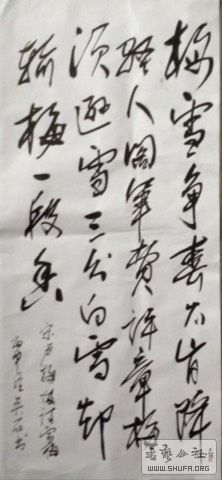 梅雪争春未肯降
骚人阁筆费评章梅
须逊雪三分白雪却
输梅一段香
宋卢梅坡诗雪梅
书艺公社
WWW.SHUFA.ORG